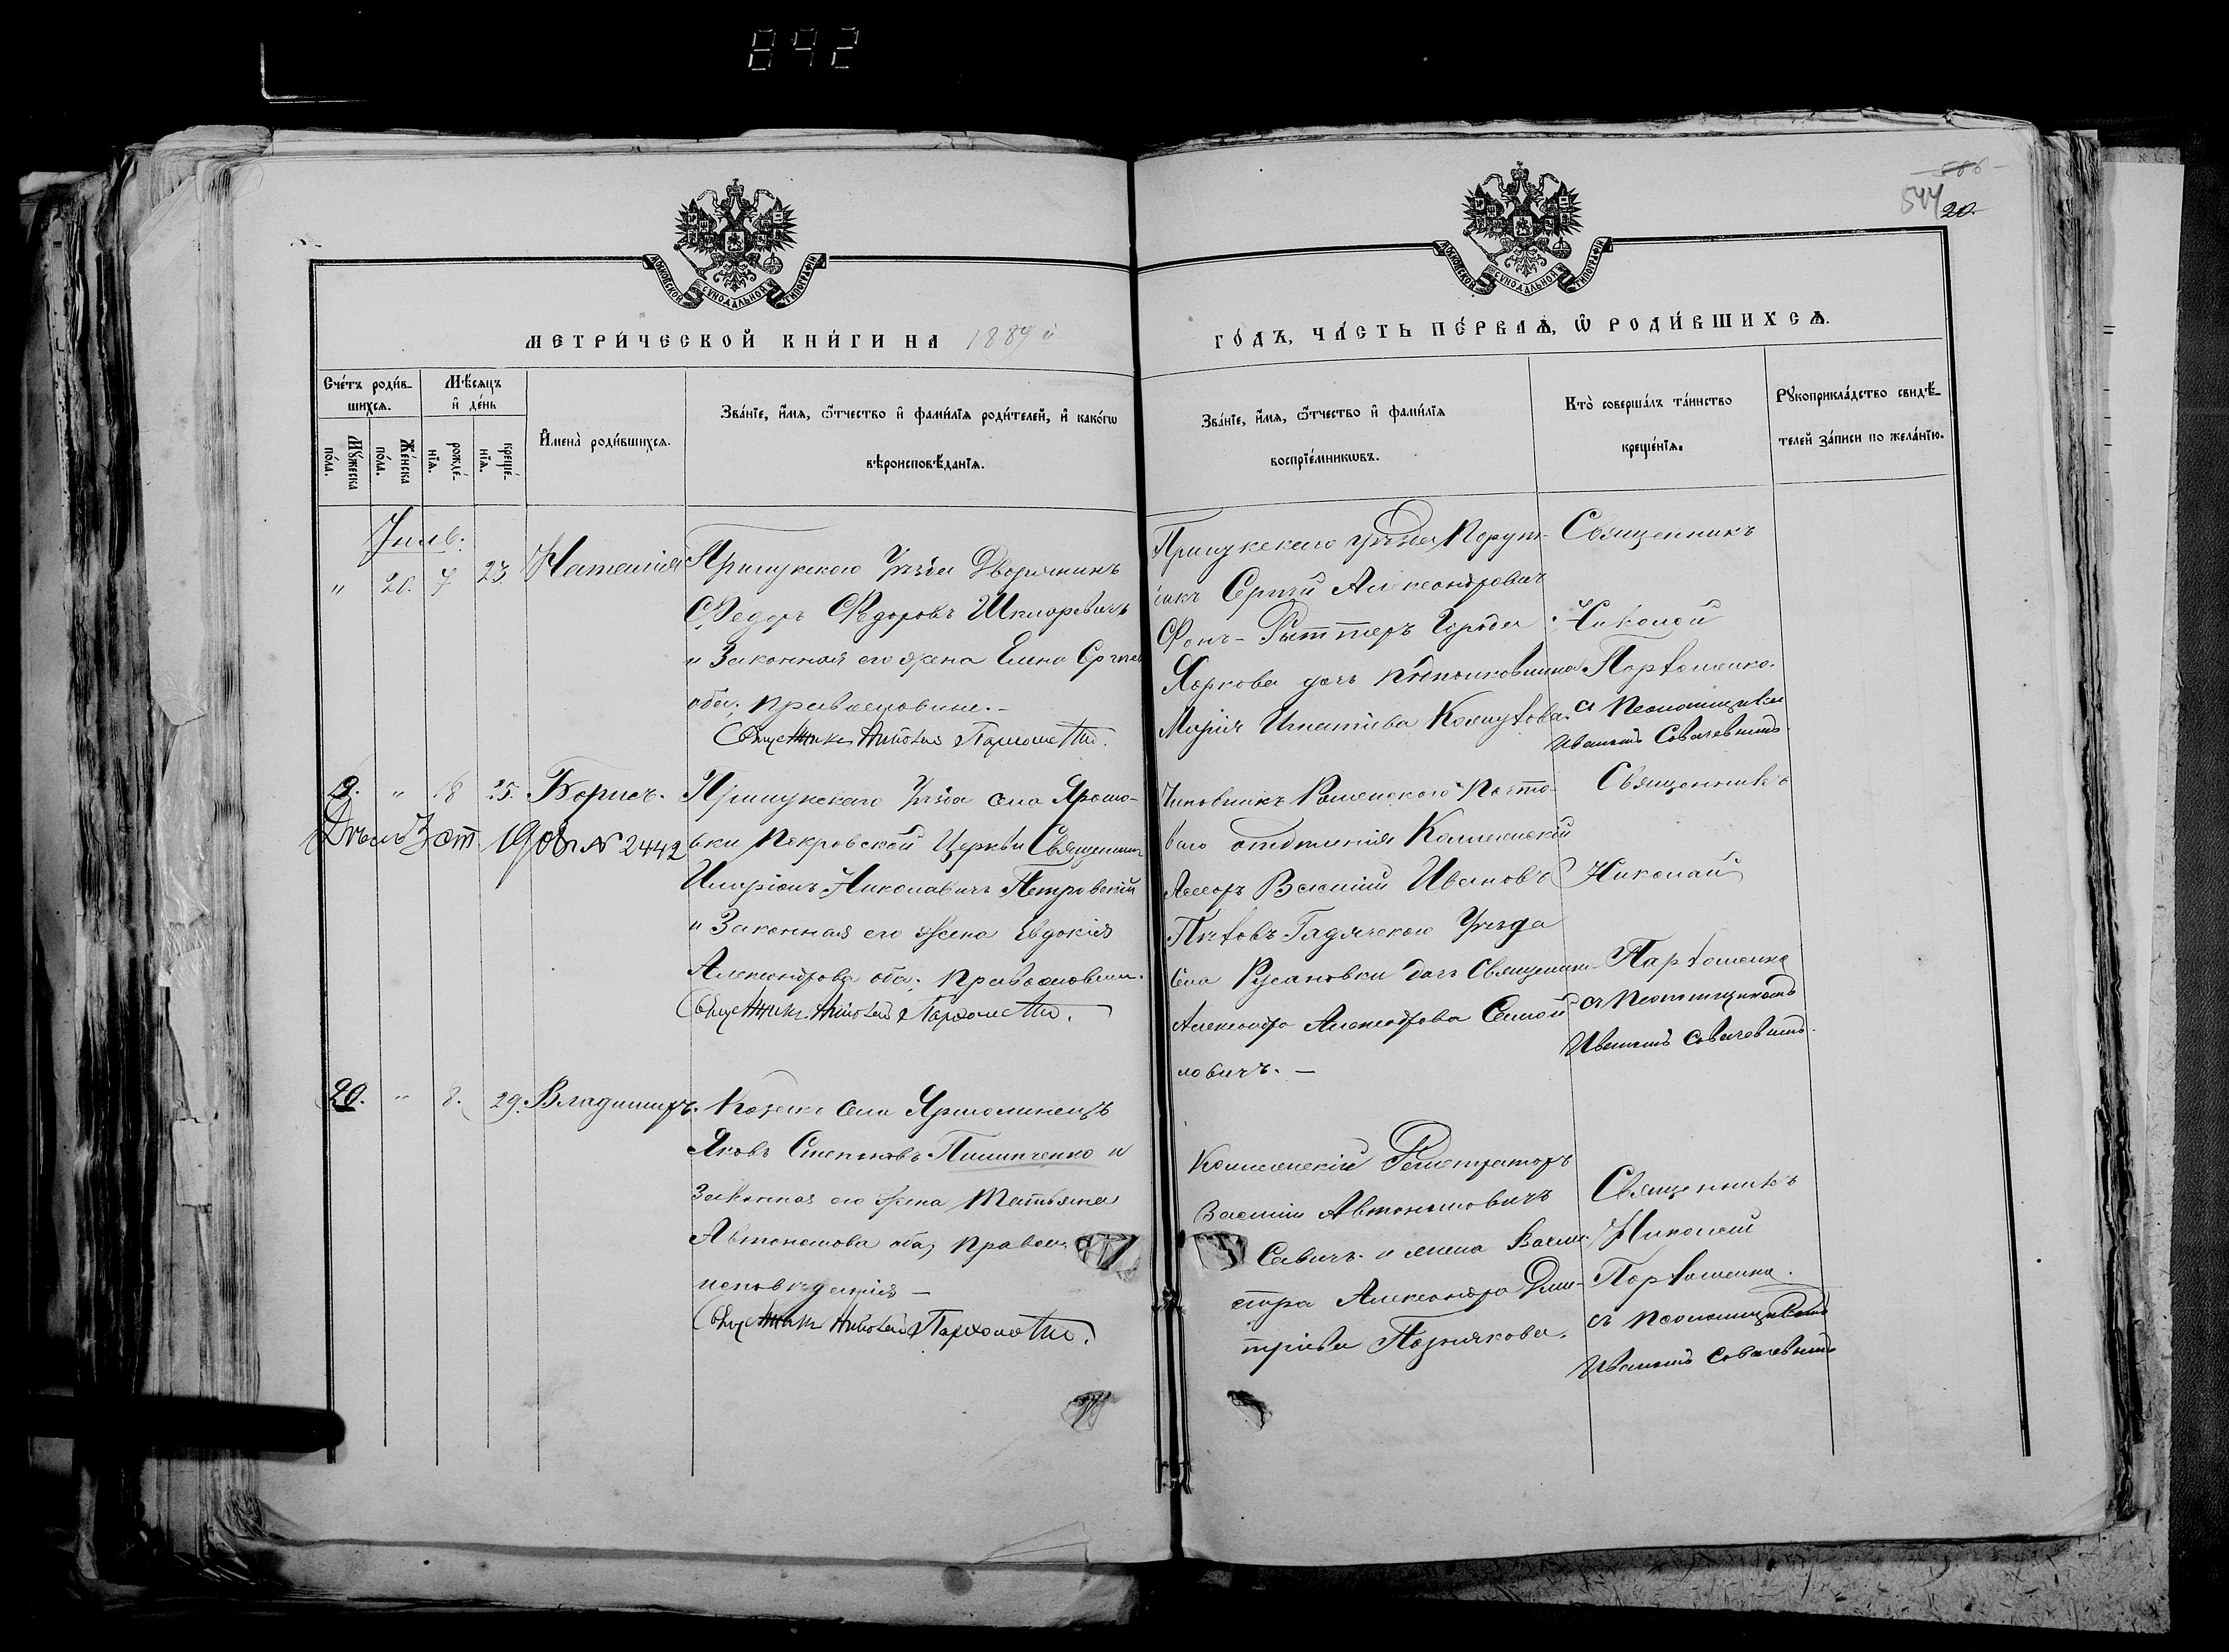 892
586
544
20.
МОСКОВСКОЙ СѴНОДАЛЬНОЙ ТИПОГРАФІИ
МОСКОВСКОЙ СѴНОДАЛЬНОЙ ТИПОГРАФІИ
МЕТРИ́ЧЕСКОЙ КНИ́ГИ НА 1889 й
ГО́ДЪ, ЧА́СТЬ ПЕ́РВАѦ, Ѽ РОДИ́ВШИХСѦ.
Сче́тъ роди́в-
шихсѧ.
Мѣ́сѧцъ
и҆ де́нь
Мꙋ́жеска
по́ла.
Же́нска
по́ла.
рожде́-
нїѧ.
креще́-
нїѧ.
И҆мена̀ роди́вшихсѧ.
Зва́нїе, и҆́мѧ, ѻ҆́тчество и҆ фами́лїѧ роди́телей, и҆ како́гѡ
вѣроисповѣ́данїѧ.
Зва́нїе, и҆́мѧ, ѻ҆́тчество и҆ фами́лїѧ
воспрїе́мникѡвъ.
Кто̀ соверша́лъ та́инство
креще́нїѧ.
Рꙋкоприкла́дство свидѣ́-
телей за́писи по жела́нїю.
" 20. 7 23 Наталія
Прилукскаго Уѣзда Дворянинъ
Федоръ Федоровъ Шкляревичъ
и Законная его жена Елена Сергѣев
оба, православные. -
Священникъ Николай Пархоменко.
Прилукскаго уѣзда Поруч-
икъ Сергѣй Александровичъ
Фонъ-Рыттеръ Города
Харкова дочь
Марія Игнатіева
Священникъ
Николай
Парфоменко.
съ Псаломщикомъ
Иваномъ
9. " 18 25. Борисъ.
№ 2442
Прилукскаго Уѣзда села Ярошо-
вки Покровской Церкви Священникъ
Иларіонъ Николаевичъ Петровскій
и Законная его жена Евдокія
Александрова оба, православны.
Священникъ Николай Пархоменко.
Чиновникъ Роменскаго Почто-
ваго отдѣленія Колежскій
Василій Ивановъ
Гадячскаго Уѣзда
села Русановки дочь Священника
Александра Александрова
ловичъ. -
Священникъ
Николай
Парфоменко
съ Псаломщикомъ
Иваномъ
20. " 8. 29. Владимиръ.
Козакъ села Ярмолинецъ
Яковъ Степановъ Пилипченко и
Законная его жена Татьяна
Автономова оба, Правосл.
исповѣданія -
Священникъ Николай Пархоменко.
Колежскій Регистраторъ
Василій Автономовичъ
Савичъ. и жена
стра Александра Дми-
тріева Познякова.
Священникъ
Николай
Парфоменко.
съ Псаломщикомъ
Иваномъ